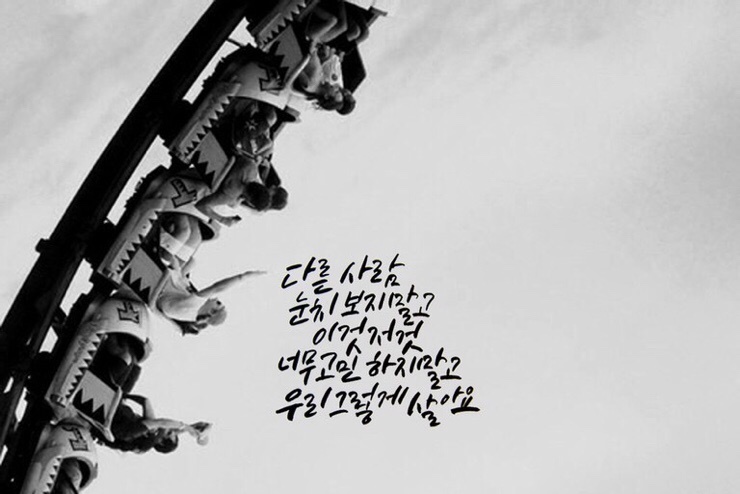 다른 사람
눈치 보지말고
이것저것
너무고민 하지말고
우리그렇게 살아요